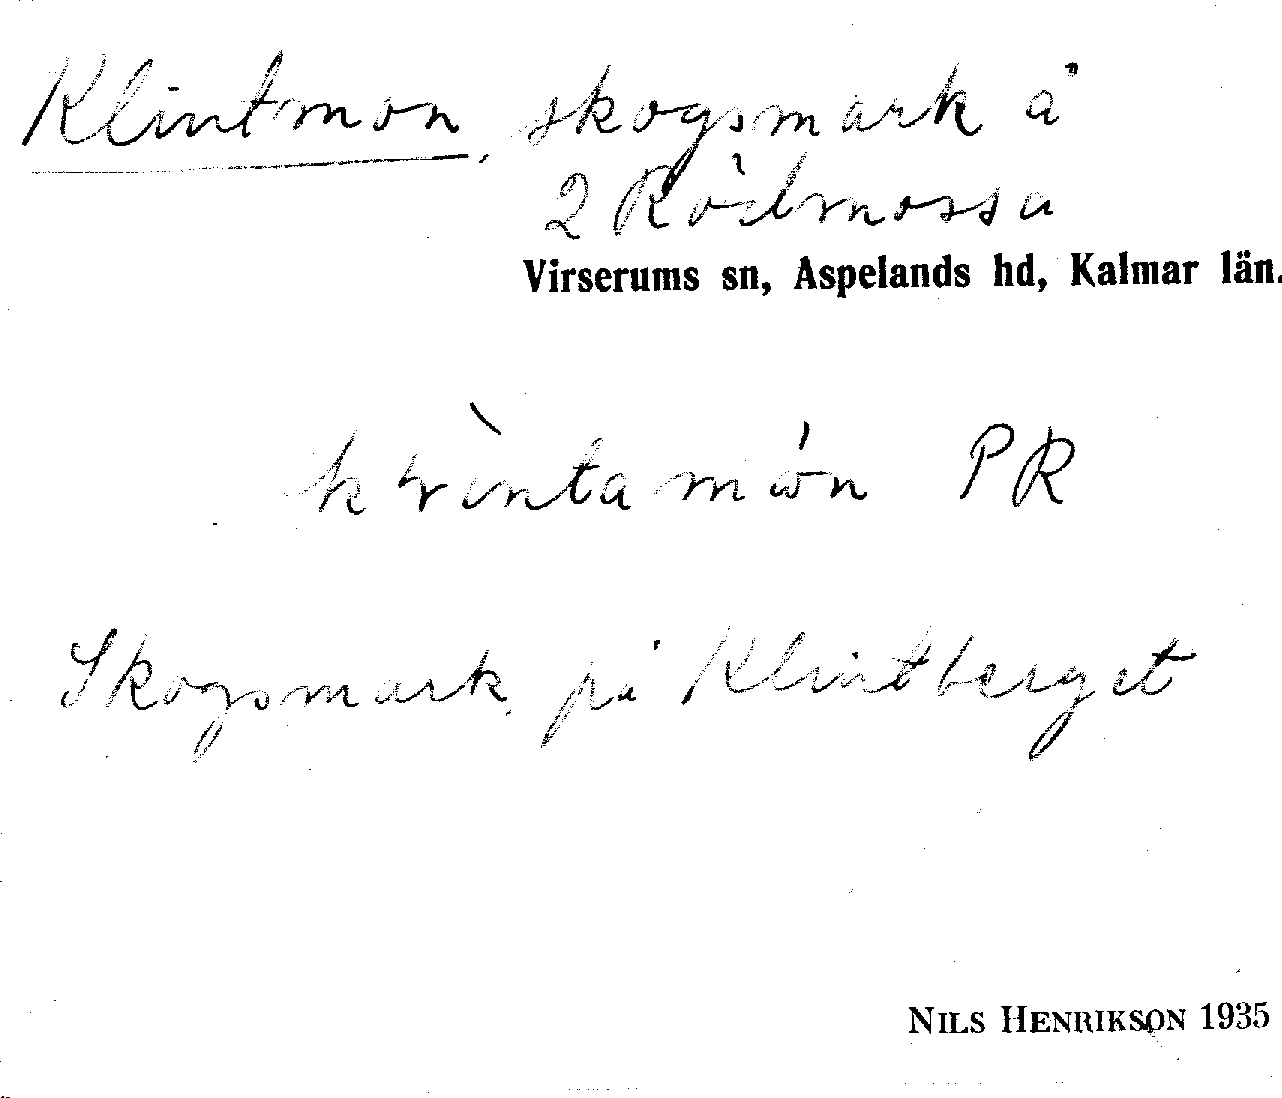 Klintmon, skogsmark å
2 Rödmossa
Virserums sn, Aspelands hd, Kalmar län.
PR
Skogsmark på Klintberget
NILS HENRIKSON 1935